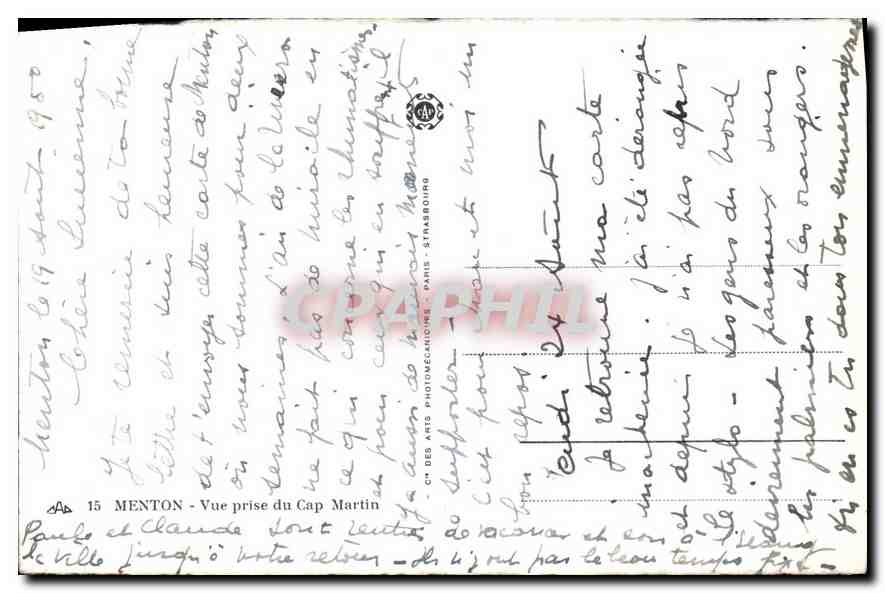 Menton le 19 Août 1950
Chère Lucienne,
Je te remercie de ta bonne
lettre et suis heureuse
de t'envoyer cette carte de Menton
où nous sommes pour deux
semaines. L'air de la
ne fait pas de miracle en
ce qui concerne les rhumatismes
et pour ceux qui en souffrent il
y a aussi de mauvais moments
à supporter -
c'est pour et moi un
bon repos.
Jeudi 24 Août
Je retrouve ma carte
inachevée. J'ai été dérangée
et depuis je n'ai pas repris
le stylo - Les gens du Nord
deviennent paresseux sous
les palmiers et les orangers.
Où en es-tu dans tes
Paule et Claude sont rentrés de vacances et sont à
la ville jusqu'à notre retour - Ils n'y ont pas le beau temps fixe -
15 MENTON - Vue prise du Cap Martin
- Cie DES ARTS PHOTOMÉCANIQUES - PARIS - STRASBOURG
CAP
CPAPHIL